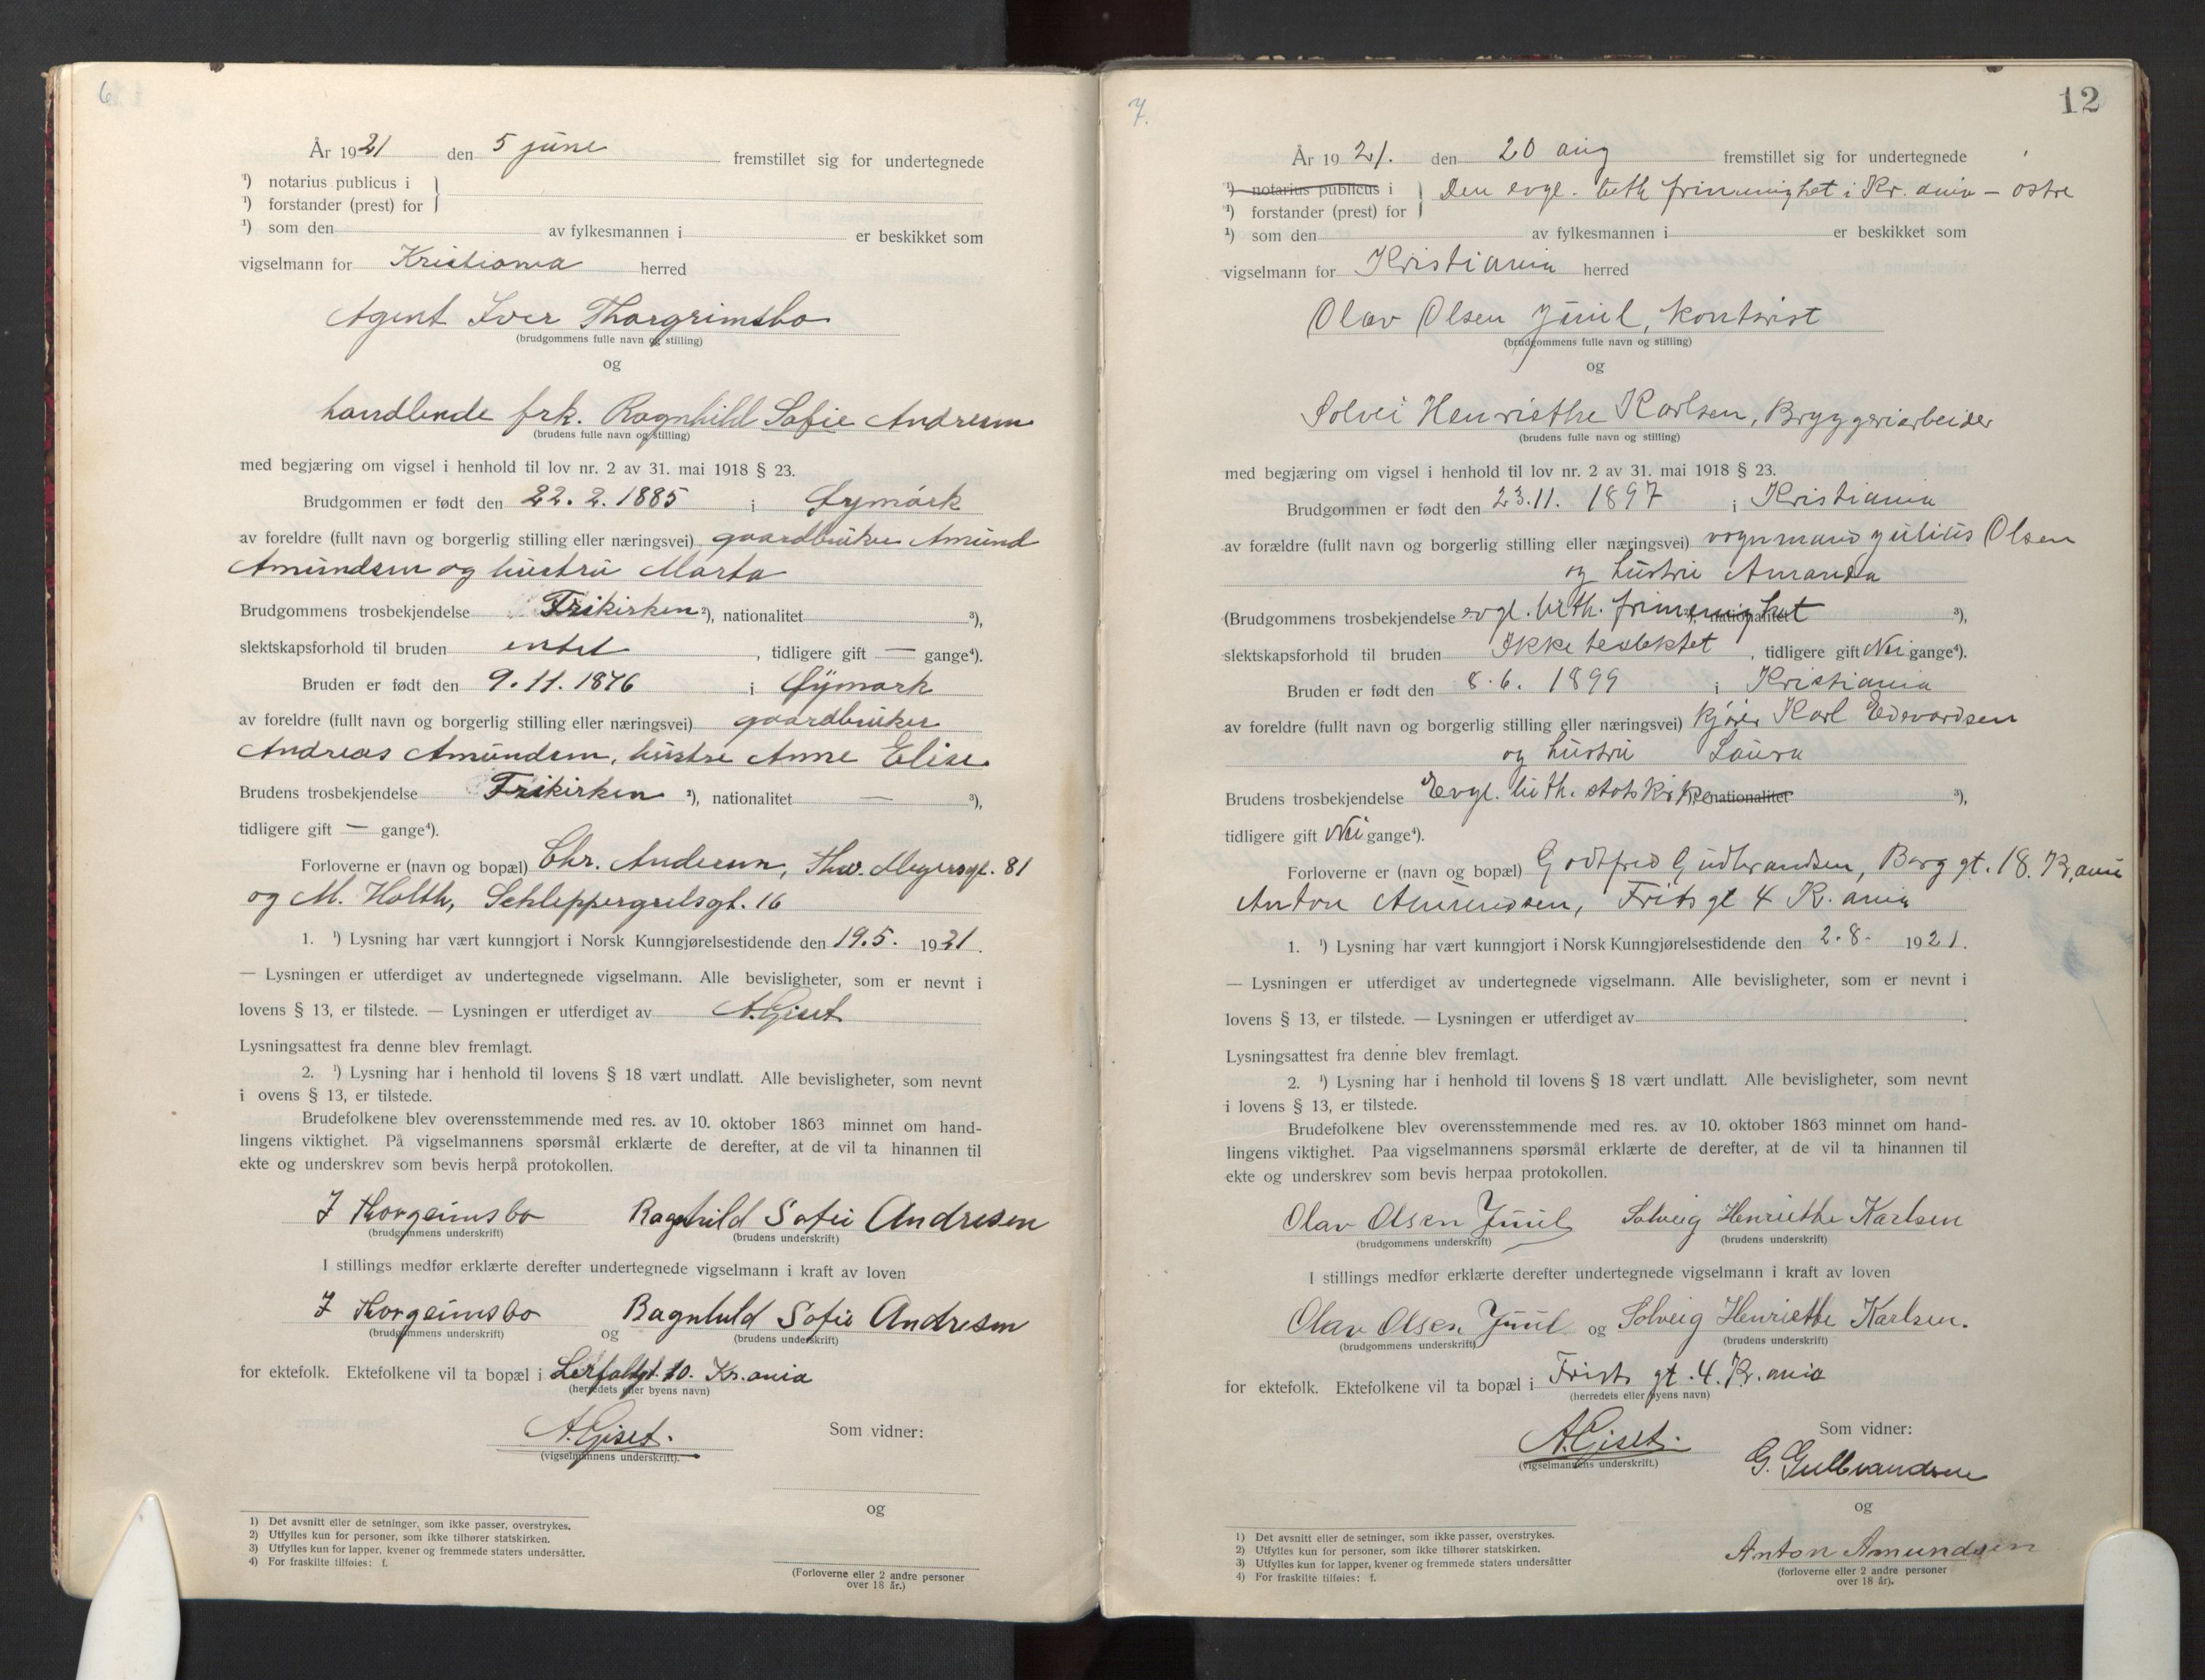 6
År 1921 den 5 june fremstillet sig for undertegnede
¹) notarius publicus i
¹) forstander (prest) for
¹) som den av fylkesmannen i er beskikket som
vigselmann for Kristiania herred
Agent Iver Thorgrimsbo
(brudgommens fulle navn og stilling)
og
handlende frk. Ragnhild Sofie Andresen
(brudens fulle navn og stilling)
med begjæring om vigsel i henhold til lov nr. 2 av 31. mai 1918 § 23.
Brudgommen er født den 22. 2. 1885 i Øymark
av foreldre (fullt navn og borgerlig stilling eller næringsvei) gaardbruker Amund
Amundsen og hustru Marta
Brudgommens trosbekjendelse Frikirken ²), nationalitet ³),
slektskapsforhold til bruden intet, tidligere gift — gange⁴).
Bruden er født den 9. 11. 1876 i Øymark
av foreldre (fullt navn og borgerlig stilling eller næringsvei) gaardbruker
Andreas Amundsen, hustru Anne Elise
Brudens trosbekjendelse Frikirken ²), nationalitet — ³),
tidligere gift — gange⁴).
Forloverne er (navn og bopæl) Chr. Andersen, Thv. Meyersgt. 81
og M. Holth, Schleppergrelsgt. 16
1. ¹) Lysning har vært kunngjort i Norsk Kunngjørelsestidende den 19. 5. 1921.
— Lysningen er utferdiget av undertegnede vigselmann. Alle bevisligheter, som er nevnt i
lovens § 13, er tilstede. — Lysningen er utferdiget av A. Giset
Lysningsattest fra denne blev fremlagt.
2. ¹) Lysning har i henhold til lovens § 18 vært undlatt. Alle bevisligheter, som nevnt
i ovens § 13, er tilstede.
Brudefolkene blev overensstemmende med res. av 10. oktober 1863 minnet om hand-
lingens viktighet. På vigselmannens spørsmål erklærte de derefter, at de vil ta hinannen til
ekte og underskrev som bevis herpå protokollen.
I Thorgrimsbo Ragnhild Sofie Andresen
(brudgommens underskrift) (brudens underskrift)
I stillings medfør erklærte derefter undertegnede vigselmann i kraft av loven
I Thorgrimsbo og Ragnhild Sofie Andresen
(brudgommens underskrift) (brudens underskrift)
for ektefolk. Ektefolkene vil ta bopæl i Lerfaldgt. 10. Kr.ania
(herredets eller byens navn)
A. Giset.
(vigselmannens underskrift).
Som vidner:
og
(Forloverne eller 2 andre personer
over 18 år.)
1) Det avsnitt eller de setninger, som ikke passer, overstrykes.
2) Utfylles kun for personer, som ikke tilhører statskirken.
3) Utfylles kun for lapper, kvener og fremmede staters undersåtter.
4) For fraskilte tilføies: f.
7.
12
År 1921. den 20 aug fremstillet sig for undertegnede
¹) notarius publicus i
¹) forstander (prest) for
Den evgl. luth frimenighet i Kr.ania – østre
¹) som den av fylkesmannen i er beskikket som
vigselmann for Kristiania herred
Olav Olsen Juul, kontorist
(brudgommens fulle navn og stilling)
og
Solvei Henriethe Karlsen, Bryggeriarbeider
(brudens fulle navn og stilling)
med begjæring om vigsel i henhold til lov nr. 2 av 31. mai 1918 § 23.
Brudgommen er født den 23. 11. 1897 i Kristiania
av forældre (fullt navn og borgerlig stilling eller næringsvei) vognmand Julius Olsen
og hustru Amanda
(Brudgommens trosbekjendelse evgl. luth. frimenighet ²), nationalitet ³),
slektskapsforhold til bruden Ikke beslektet, tidligere gift Nei gange⁴).
Bruden er født den 8. 6. 1899 i Kristiania
av foreldre (fullt navn og borgerlig stilling eller næringsvei) kjører Karl Edvardsen
og hustru Laura
Brudens trosbekjendelse Evgl. luth. statskirke nationalitet ³),
tidligere gift Nei gange⁴).
Forloverne er (navn og bopæl) Godtfred Gudbrandsen, Borggt. 18. Kr.ania
Anton Amundsen, Frits gt 4 Kr.ania
1. ¹) Lysning har vært kunngjort i Norsk Kunngjørelsestidende den 2. 8. 1921.
— Lysningen er utferdiget av undertegnede vigselmann. Alle bevisligheter, som er nevnt i
lovens § 13, er tilstede. — Lysningen er utferdiget av
Lysningsattest fra denne blev fremlagt.
2. ¹) Lysning har i henhold til lovens § 18 vært undlatt. Alle bevisligheter, som nevnt
i lovens § 13, er tilstede.
Brudefolkene blev overensstemmende med res. av 10. oktober 1863 minnet om hand-
lingens viktighet. Paa vigselmannens spørsmål erklærte de derefter, at de vil ta hinannen til
ekte og underskrev som bevis herpaa protokollen.
Olav Olsen Juul Solveig Henriethe Karlsen
(brudgommens underskrift) (brudens underskrift)
I stillings medfør erklærte derefter undertegnede vigselmann i kraft av loven
Olav Olsen Juul og Solveig Henriethe Karlsen.
(brudgommens underskrift) (brudens underskrift)
for ektefolk. Ektefolkene vil ta bopæl i Frists gt. 4. Kr.ania
(herredets eller byens navn)
A. Giset.
(vigselmannens underskrift.)
Som vidner:
G. Gulbrandsen
og
Anton Amundsen
(forloverne eller 2 andre personer
over 18 år).
1) Det avsnitt eller de setninger, som ikke passer, overstrykes.
2) Utfylles kun for personer, som ikke tilhører statskirken.
3) Utfylles kun for lapper, kvener og fremmede staters undersåtter
4) For fraskilte tilføies: f.